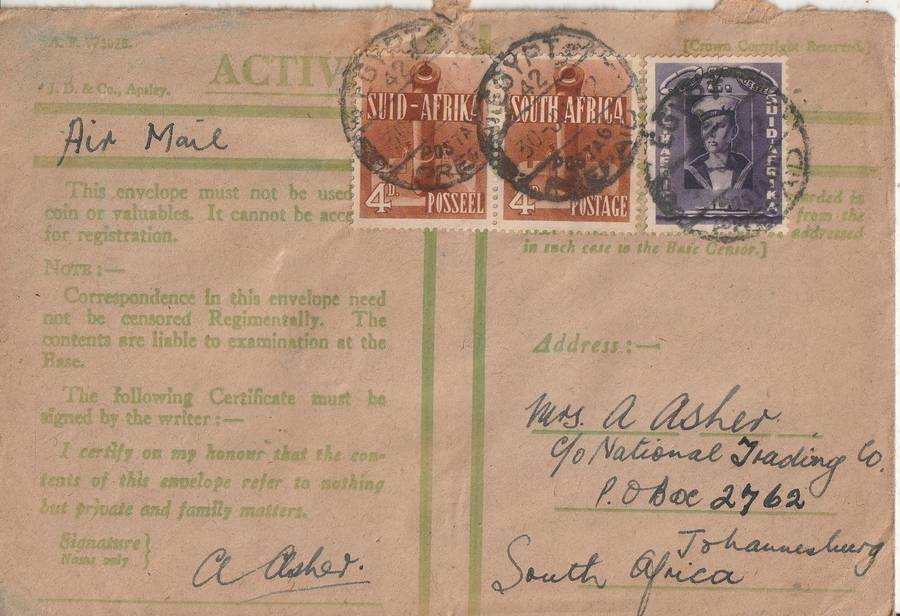 [Crown Copyright Reserved.]
J. D. & Co., Apsley.
ACTIV
Air Mail
EGYPT
42
PREPAID
SUID-AFRIKA
POSTAGE
4D.
POSSEEL
EGYPT
42
PREPAID
SOUTH AFRICA
POSTAGE
4D.
POSTAGE
EGYPT
SUID-AFRIKA
This envelope must not be used
coin or valuables. It cannot be acce
for registration.
from the
addressed
in such case to the Base Censor.]
NOTE :—
Correspondence in this envelope need
not be censored Regimentally. The
contents are liable to examination at the
Base.
The following Certificate must be
signed by the writer :—
I certify on my honour that the con-
tents of this envelope refer to nothing
but private and family matters.
Signature }
Name only
A Asher.
Address :—
Mrs. A Asher
c/o National Trading Co.
P.O Box 2762
Johannesburg
South Africa